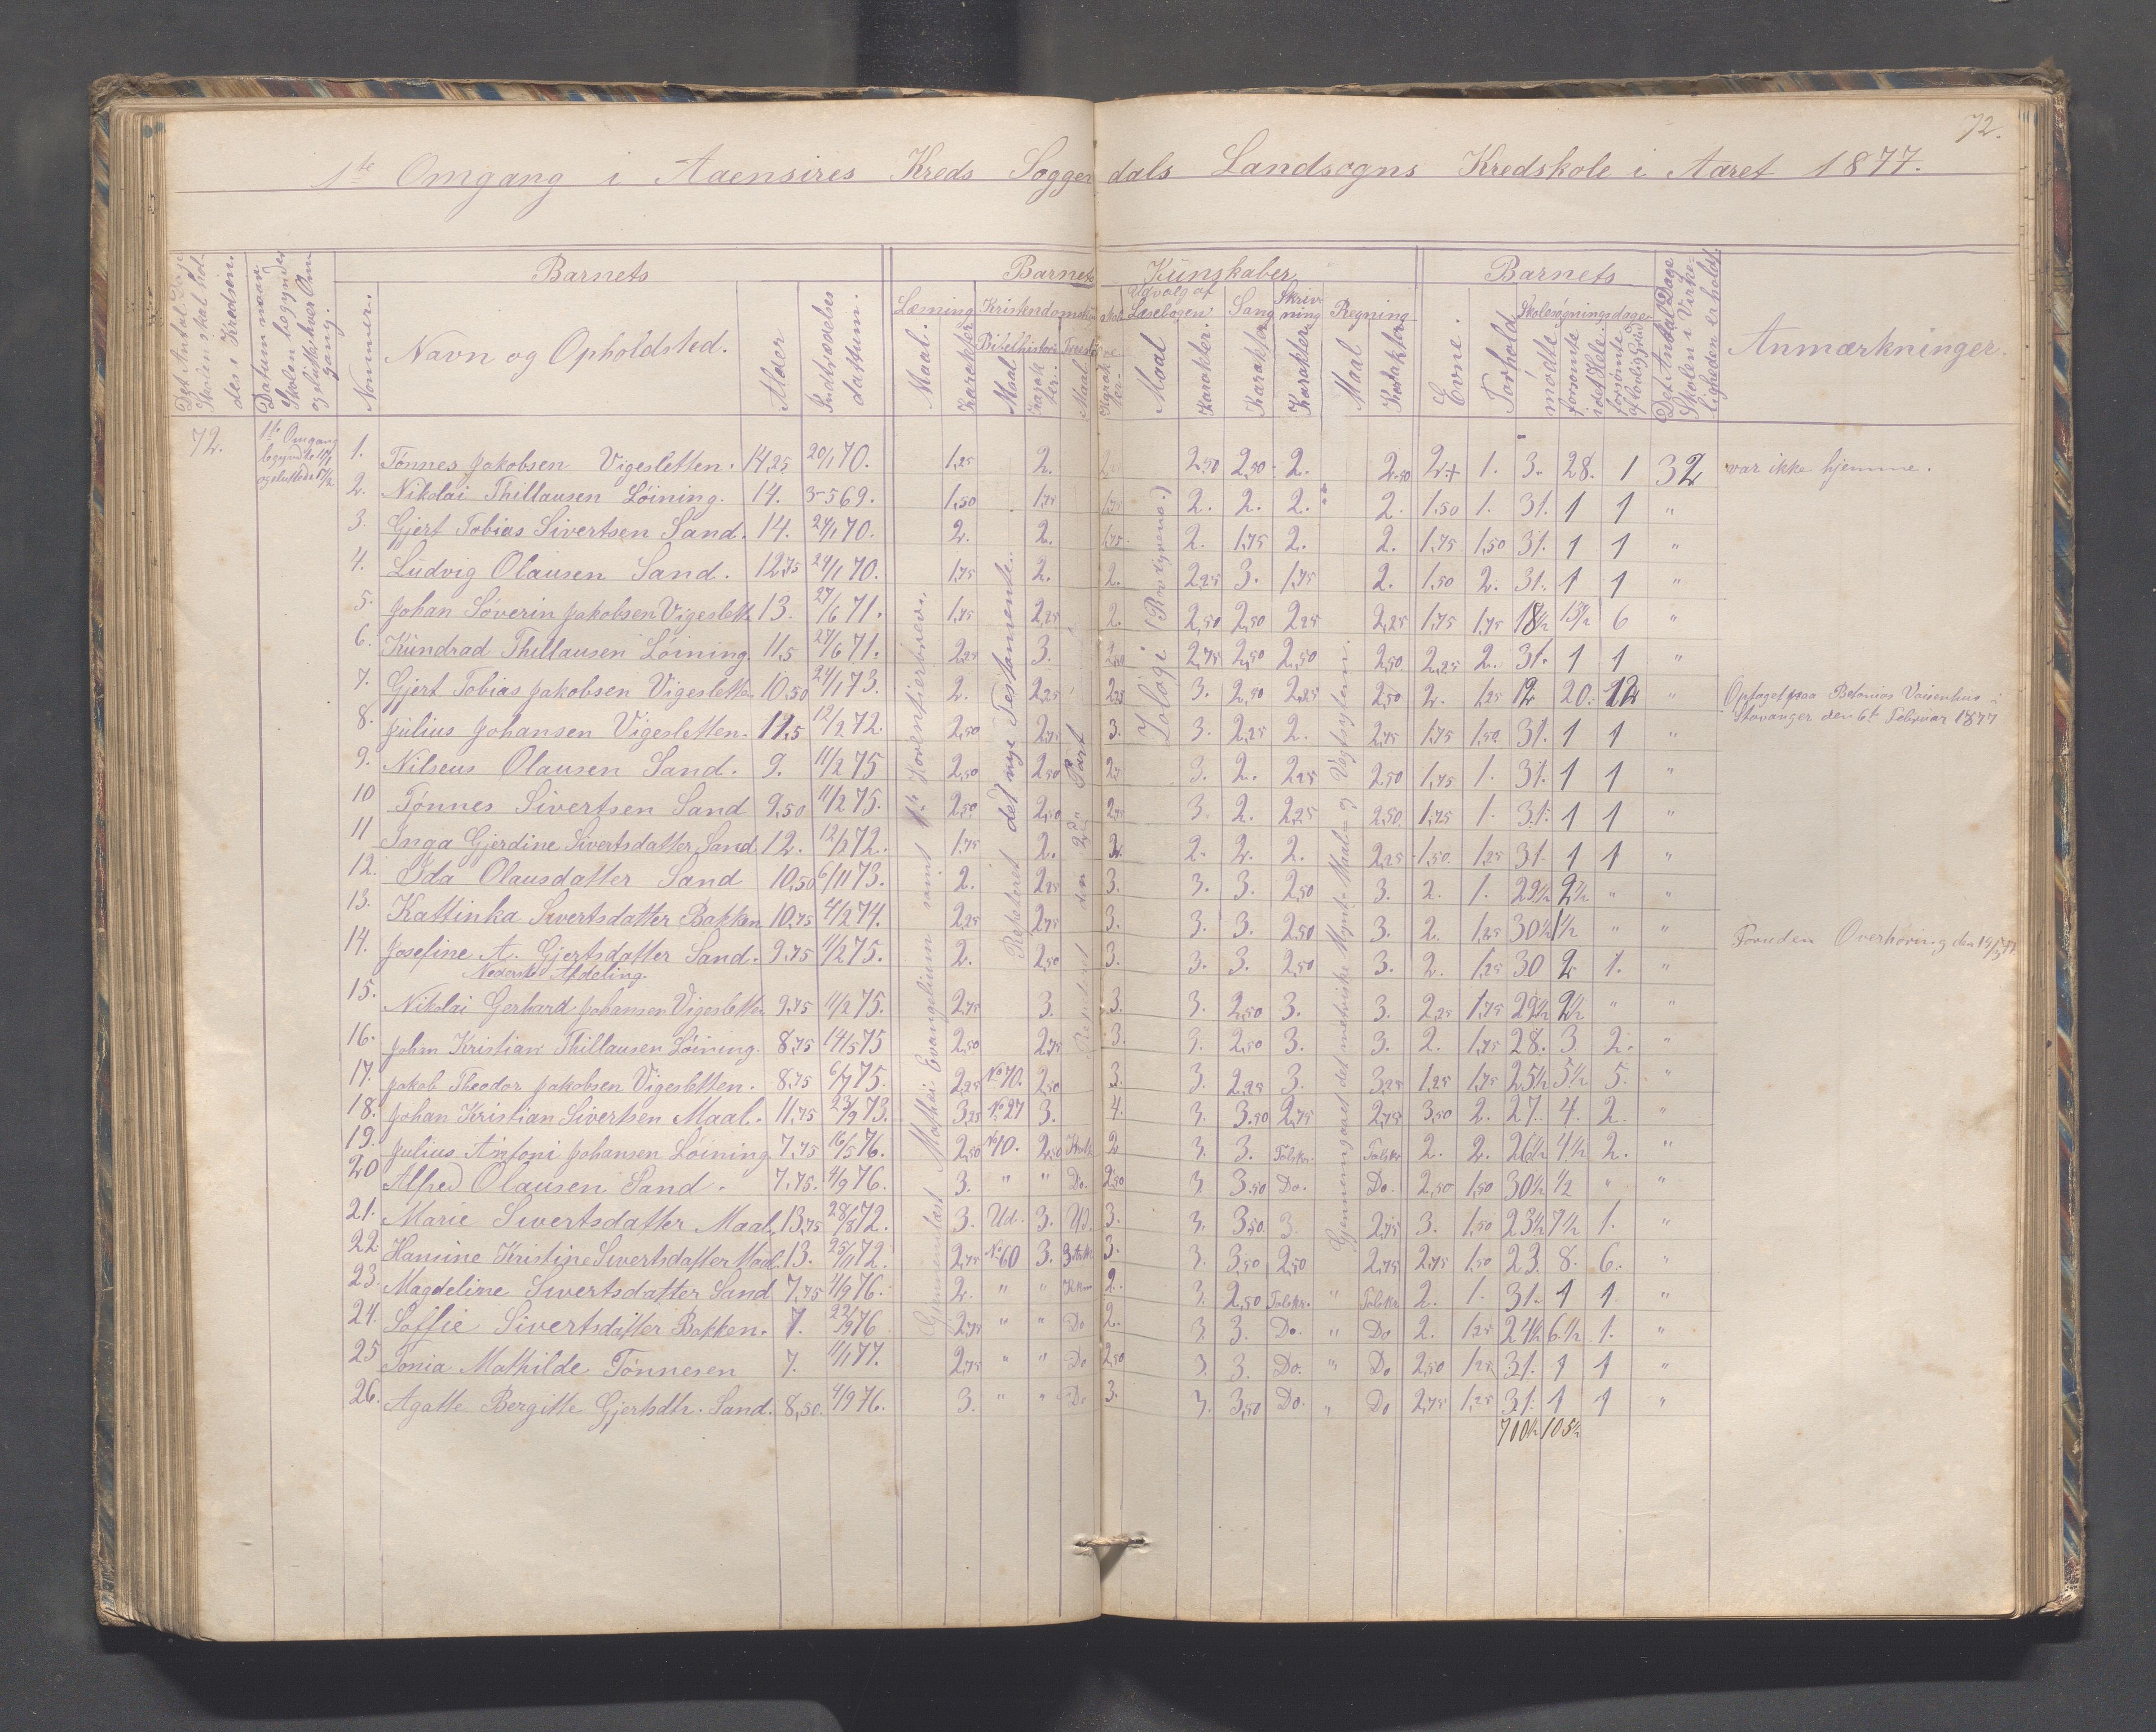 72.
1ste Omgang i Aaensires Kreds Soggendals Landsogns Kredskole i Aaret 1877.
Barnets Barnets Kundskaber Barnets
Læsning Kristendomskundskab Udvalg af Læsebogen Sang Skrivning Regning Skolesøgningsdage
Bibelhistorie
Nummer. Navn og Opholdsted. Alder Indtrædelses dattum. Maal. Karakter Maal Karakter. Maal. Karakter Maal Karakter. Karakter Karakter. Maal Karakter Evne. Forhold mødte forsømte i det Hele forsømte Anmærkninger.
72. 1ste Omgang
1. Tønnes Jakobsen Vigesletten. 14,25 20/1 70. 1,25 2. 2,50 2,50 2. 2,50 2+ 1. 3. 28. 1 32 var ikke hjemme.
2. Nikolai Thillausen Løining. 14. 3-5 69. 1,50 1,75 1,75 2. 2. 2. 2. 1,50 1. 31. 1 1 "
3. Gjert Tobias Sivertsen Sand. 14. 27/1 70. 2. 2. 1,75. 2. 1,75 2. 2. 1,75 1,50 31. 1 1 "
4. Ludvig Olausen Sand. 12,75 24/1 70. 1,75 2. 2. 2,25 3. 1,75 2. 1,50 2. 31. 1 1 "
5. Johan Søverin Jakobsen Vigeslett 13. 27/6 71. 1,75 2,25 2. 2,50 2,50 2,25 2,25 1,75 1,75 18½ 13½ 6 "
6. Kundrad Thillausen Løining. 11,5 27/6 71. 2,25 3. 2,50 2,75 2,50 2,50 2,50 2,25 2. 31. 1 1 "
7. Gjert Tobias Jakobsen Vigesletten 10,50 24/1 73. 2. 2,25 2,25 3. 2,50 2,25 2,50 2. 1,25 12 20. 12 " Optaget paa Betanias Vaisenhus i
Stavanger den 6te Februar 1877
8. Julius Johansen Vigesletten. 11,5 12/2 72. 2,50 2,75 3. 3. 2,25 2. 2,75 1,75 1,50 31. 1 1 "
9. Nilseus Olausen Sand. 9. 11/2 75 2,50 2,50 3. 2. 2,25 2,50 1,75 1. 31. 1 1 "
10 Tønnes Sivertsen Sand 9,50 11/2 75. 2,50 2,50 2,75 3. 2. 2,25 2,50. 1,75 1. 31. 1 1 "
11 Inga Gjerdine Sivertsdatter Sand. 12. 12/2 72. 1,75 2. 2. 2. 2. 2. 2,25 1,50. 1,25 31. 1 1 "
12. Ida Olausdatter Sand 10,50 6/11 73. 2. 2,25 3. 3. 3. 2,50 3. 2. 1. 29½ 2½ " "
13. Kattinka Sivertsdatter Bakken 10,75 4/2 74. 2,25 2,75 3. 3. 3. 2,50 3. 2. 1,25 30½ 1½ " "
14. Josefine A. Gjertsdatter Sand. 9,75 11/2 75. 2. 2,50 3. 3. 3. 2,50 3. 2. 1,25 30 2 1. " Foruden Overhøring den
Nederste Afdeling.
15. Nikolai Gerhard Johansen Vigesletten 9,75 11/2 75. 2,75 3. 3. 3. 2,50 3. 3. 2,25 1,75 29½ 2½ " "
16. John Kristian Thillausen Løining. 8,75 14/5 75 2,50 2,75 3. 3. 2,50 3. 3. 2. 1,75 28. 3 2. "
17. Jakob Theodor Jakobsen Vigesletten. 8,75 6/7 75. 2,25 No 70. 2,50 3. 3. 2,25 3. 3,25 1,25 1,75 25½ 5½ 5. "
18. Johan Kristian Sivertsen Maal. 11,75 23/9 73. 3,25 No 27 3. 4. 3. 3,50 2,75 2,75 3,50 2. 27. 4. 2. "
19. Julius Antoni Johansen Løining 7,75 16/5 76. 2,50 No 10. 2,50 2 3. 3. Talskr. Talskr 2. 2. 26½ 4½ 2. "
20 Alfred Olausen Sand. 7,75. 4/9 76. 3. " " Do. 2,50 3. 3,50 Do. Do. 2,50 1,50 30½ ½ " "
21. Marie Sivertsdatter Maal, 13,75 28/8 72. 3. Ud. 3. Ud. 3. 3. 3,50 3. 2,75 3. 1,50 23½ 7½ 1. "
22. Hansine Kristine Sivertsdatter Maal. 13. 25/11 72. 2,75 No 60 3. 3. 3. 3,50 2,50 2,75 2,75 1,50 23. 8. 6. "
23. Magdeline Sivertsdatter Sand 7,75 4/9 76. 2. " " 2. 3. 2,50 Talskr. " Talskr 2. 1. 31. 1 1. "
24. Soffie Sivertsdatter Bakken. 7. 22/9 76 2,75 " " Do 2. 3. 3. Do. " Do 2. 1,25 24½ 6½ 1. "
25 Tonia Mathilde Tønnesen 7. 11/1 77. 2,75 " " Do 2,50 3. 3. Do. " Do 2,50 1,25 31. 1 1 "
26. Agatte Bergitte Gjertsdtr. Sand. 8,50. 4/9 76. 3. " " Do 3. 3. 3,50 Do. " Do 2,75 1,25 31. 1 1 "
710½ 105½
Gjennemlæst Mathæi Evangelium samt 1ste Korentierbrev.
Repeteret det nye Testamente.
Repeteret den 2den Part
Zologi (Rovdyrene.)
Gjennemgaaet det metriske Mynt- Maale og Vegtsystem.